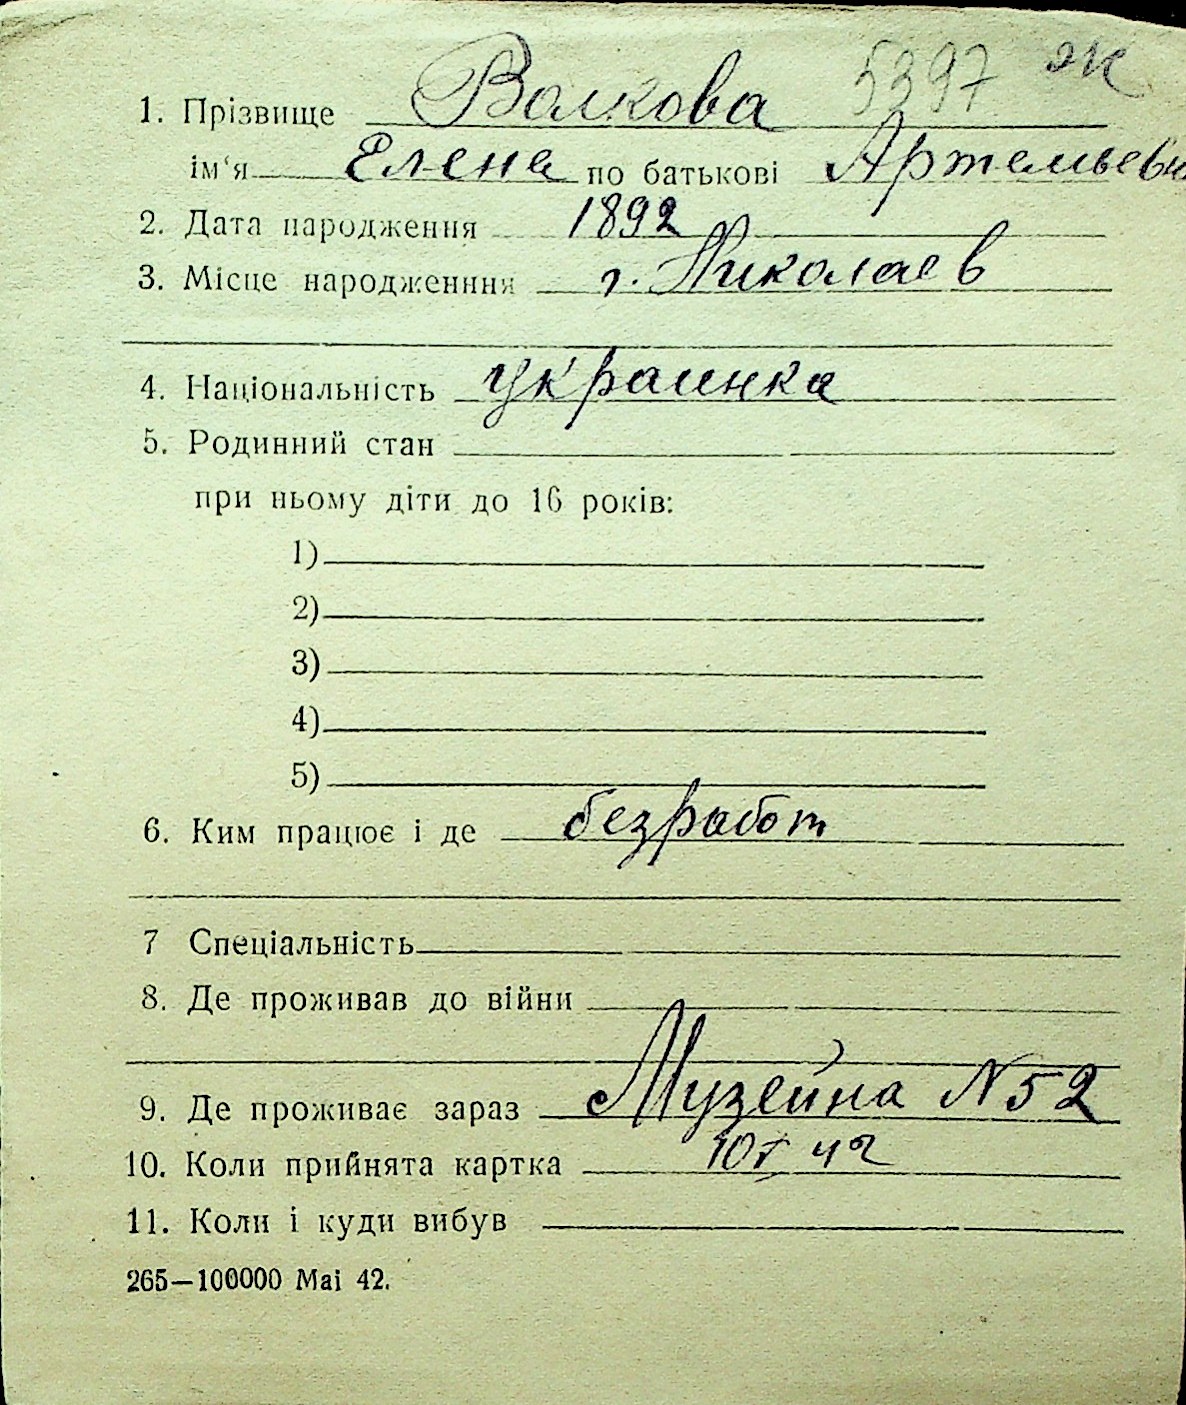 5397 ж
1. Прізвище Волкова
ім'я Елена по батькові Артемьевна
2. Дата народження 1892
3. Місце народженння г. Николаев
4. Національність украинка
5. Родинний стан
при ньому діти до 16 років:
1)
2)
3)
4)
5)
6. Ким працює і де безработ
7 Спеціальність
8. Де проживав до війни
9. Де проживає зараз Музейна N 52
10. Коли прийнята картка
11. Коли і куди вибув
265—100000 Mai 42.